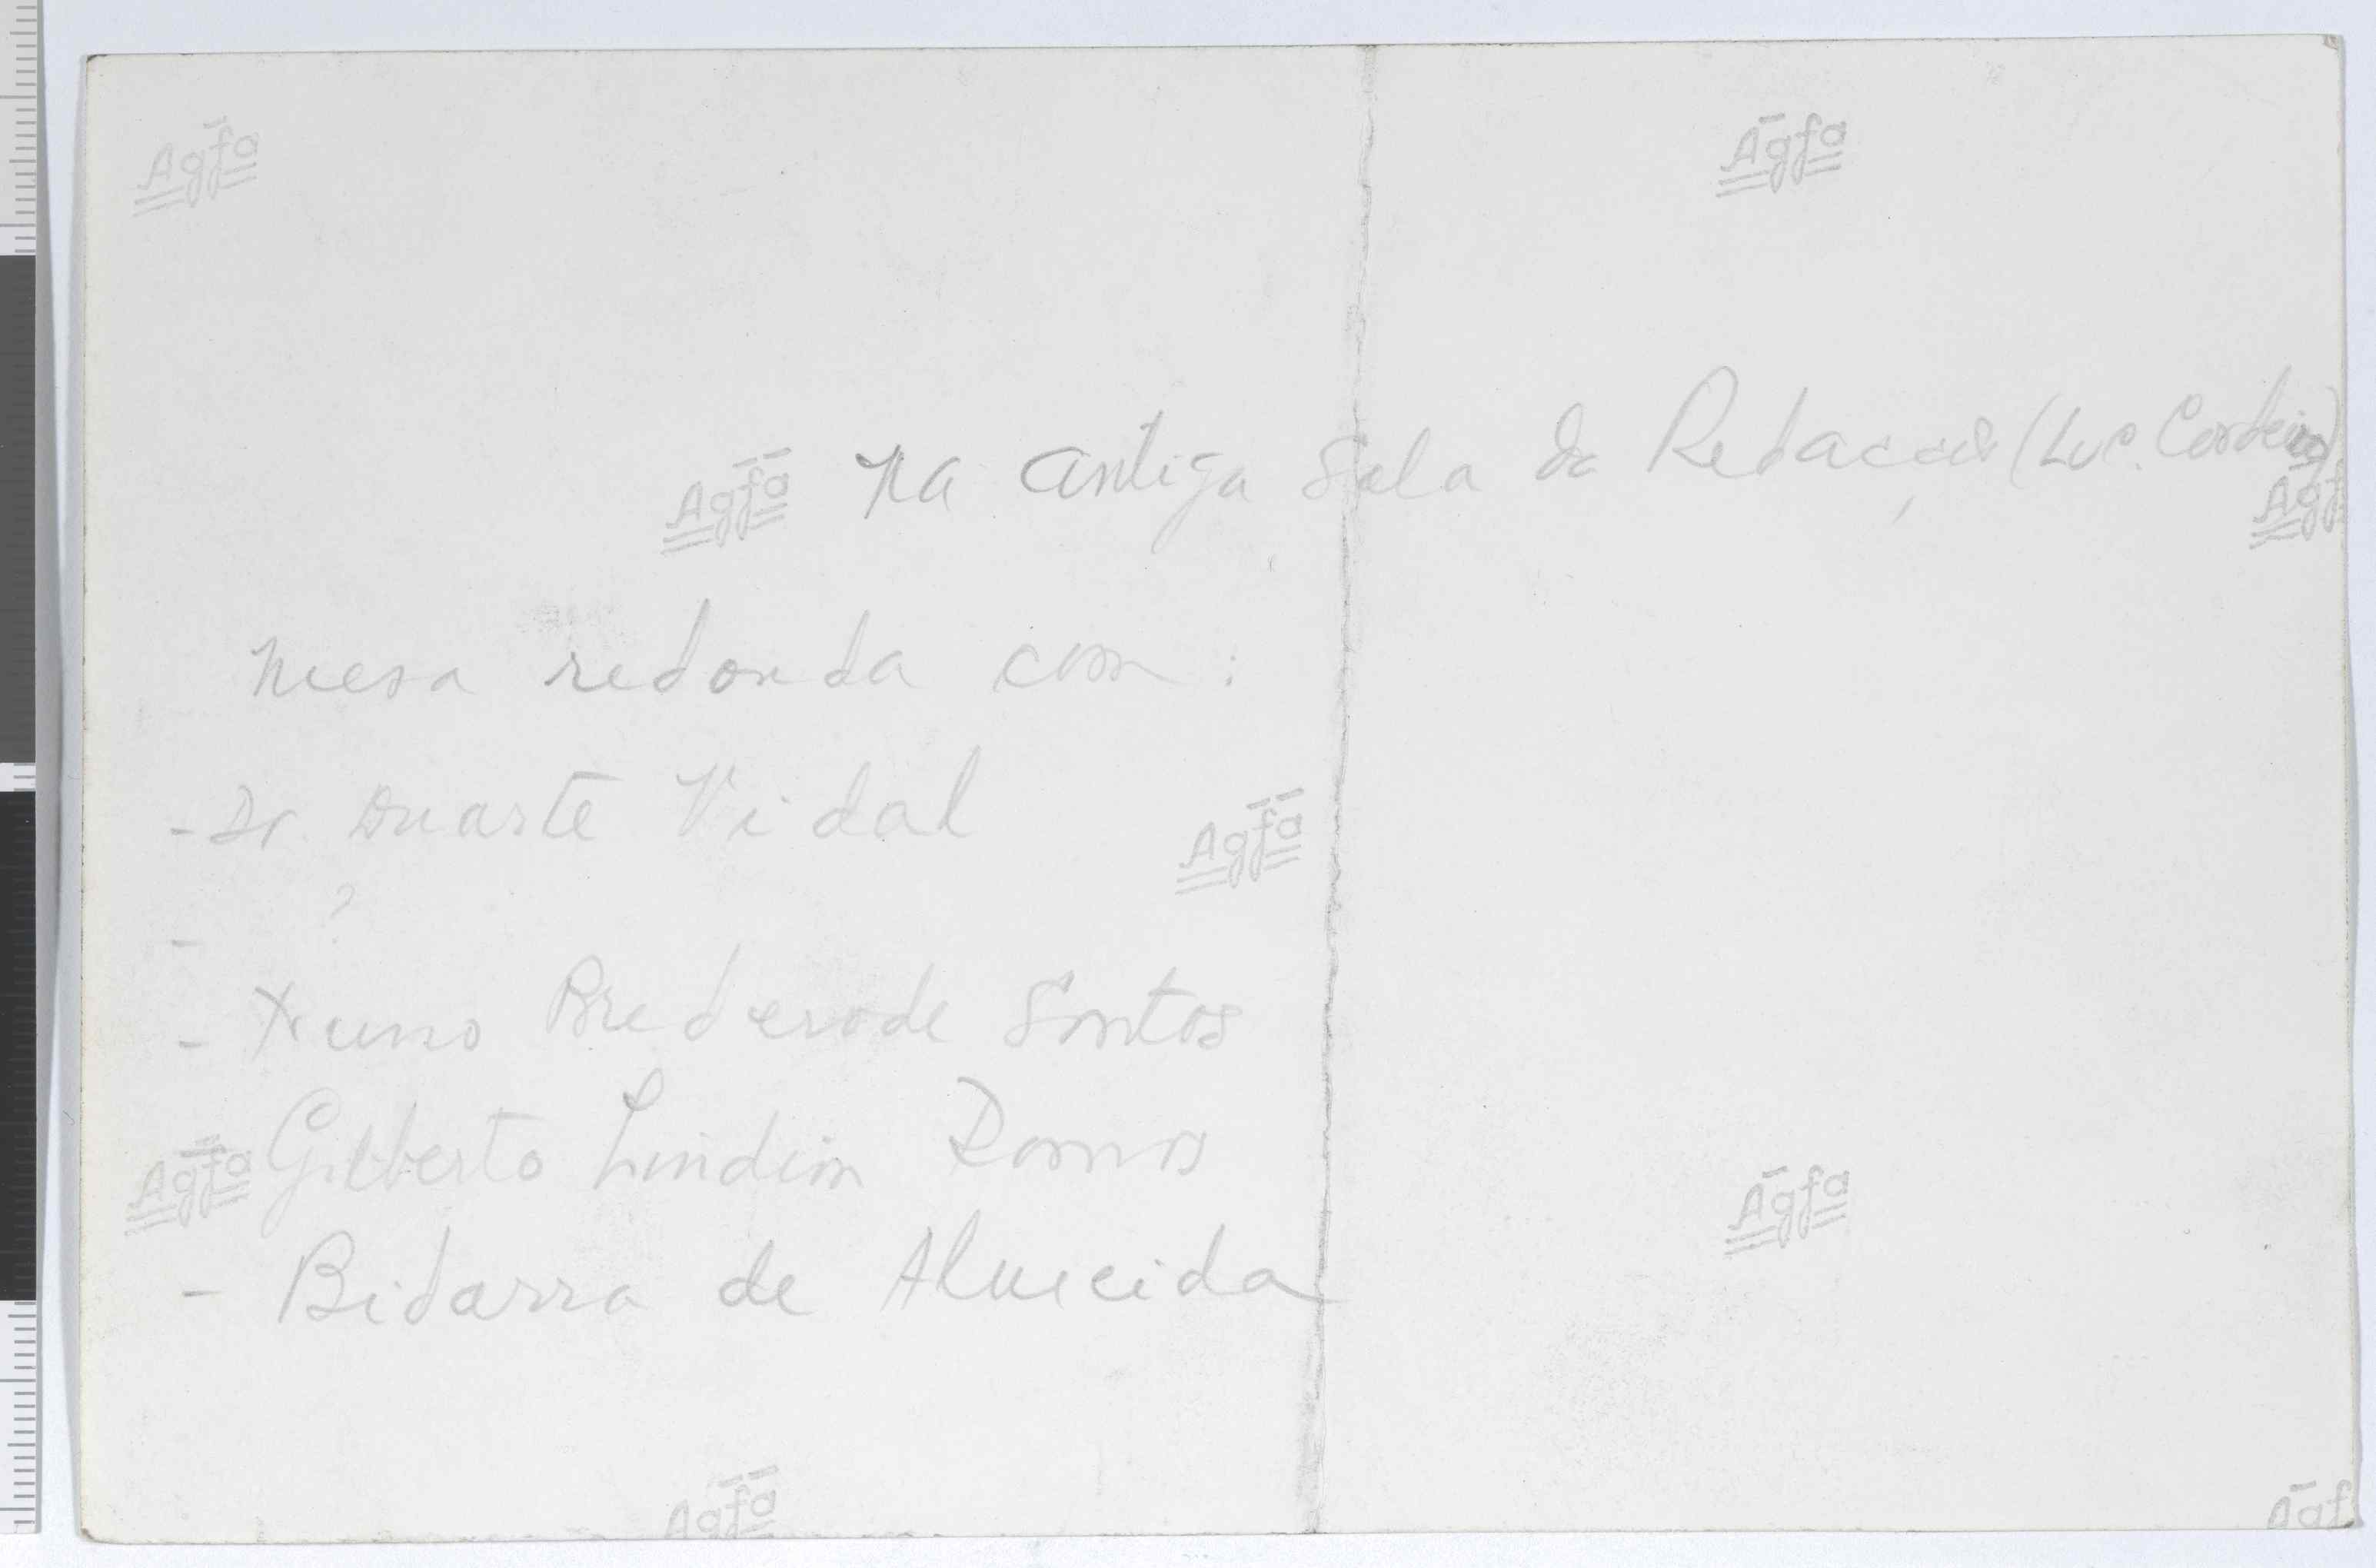 Agfa Agfa
Agfa Na antiga Sala da Redacção (Luc. Cordeiro)
Agf
Mesa redonda com:
- Dr. Duarte Vidal
Agfa
- ?
- Nuno Brederode Santos
Agfa Gilberto Lindim Ramos
Agfa
- Bidarra de Almeida
Agfa Agf